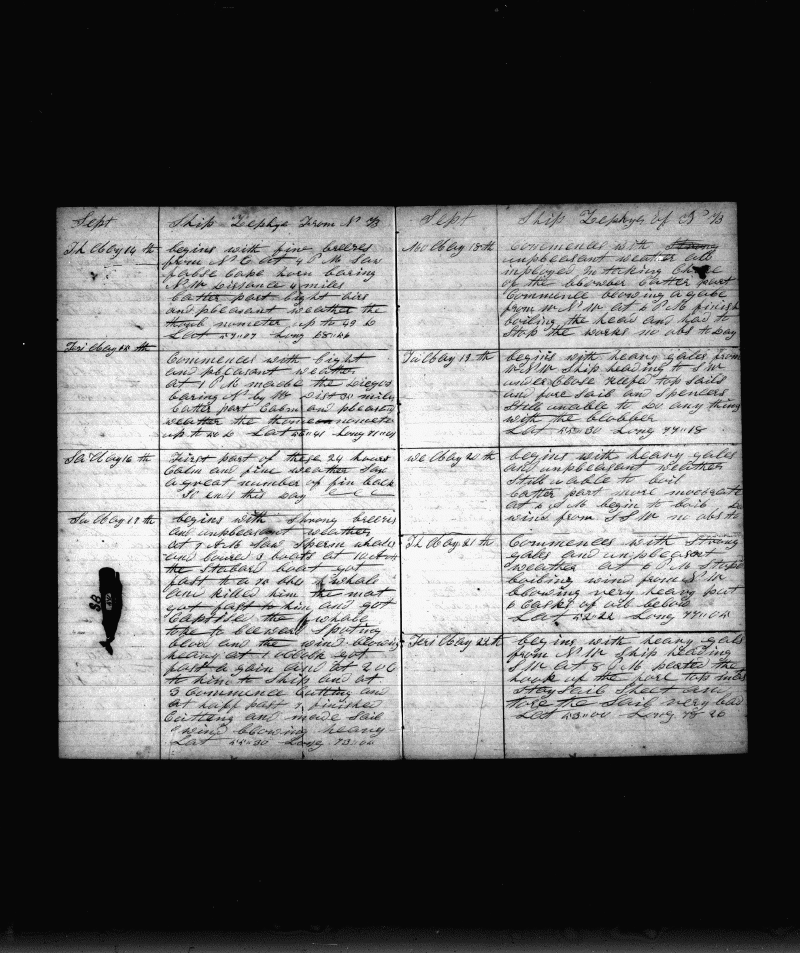 Sept
Ship Zephyr From N B
Th May 14 th
begins with fine breezes
from N E at 4 P M Saw
false Cape horn baring
N W Dissance 4 miles
Latter part light airs
and pleasant weather the
nometer up to 49 D
Lat Long
Fri May 15 th
Commences with light
and pleasant weather
at 1 P M maide the Diegos
baring N by W Dist 30 miles
Latter part Calm and pleasant
weather the nometer
up to Lat Long
Sa May 16 th
First part of these 24 hours
Calm and fine weather Saw
a great number of fin back
So ends this day
Su May 17 th
begins with Strong breezes
and unpleasant weather
at 7 A M Saw Sperm whales
and loured 3 boats at 10
the Stabard boat got
fast to a 70 bbs whale
and killed him the mat
got fast to him and got
Capsised the whale
toke to leeward Spouting
blod and the wind blowing
heavy at 1 oclock got
fast again and at 2 Got
to him to Ship and at
3 Commence Cutting and
at half past 7 finished
Cutting and made Sail
wind blowing heavy
Lat 55 30 Long 73 00
Sept
Ship Zephyr of N B
Mo May 18 th
Commences with Strong
unpleasant weather all
imployed in taking Care
of the blubber Latter part
Commence blowing a gale
from W N W at 6 P M finish
boiling the head and had to
Stop the works no obs to day
Tu May 19 th
begins with heavy gales from
W N W Ship heading to S W
under Close reefed top Sails
and fore Sail and Spencers
Still unable to do any thing
with the blubber
Lat 55 30 Long 77 18
We May 20 th
begins with heavy gales
and unpleasant weather
Still unable to boil
Latter part more moderate
at begin to boil
wind from S S W no obs to
Th May 21 th
Commences with Strong
gales and unpleasant
weather at 6 P M Stops
boiling wind from N W
blowing very heavy put
6 Casks of oil below
Lat 52 22 Long 77 04
Fri May 22 th
begins with heavy gals
from N W Ship heading
S W at 8 P M parted the
hook of the fore top mast
Stay Sail Sheet and
tore the Sail very bad
Lat 53 00 Long 78 26